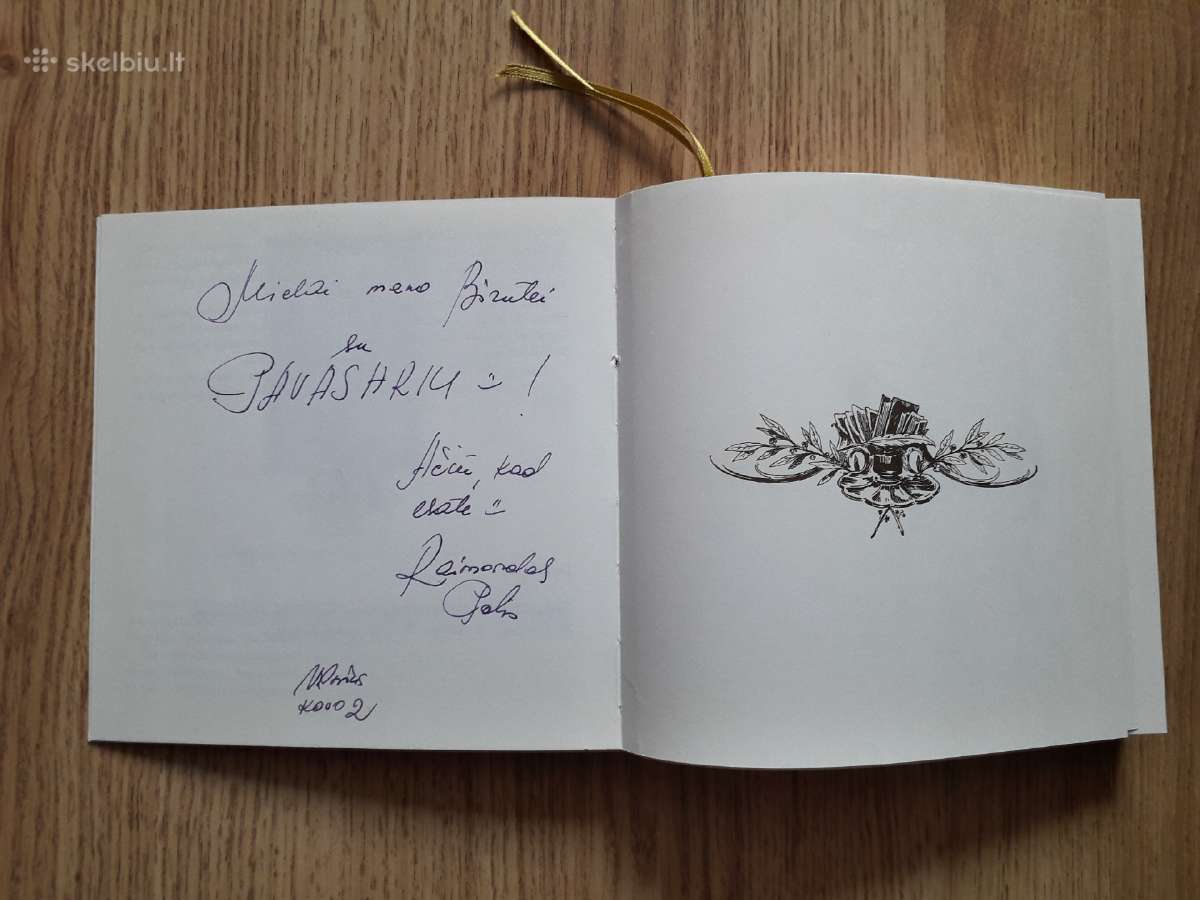 skelbiu.lt
Mielai mano Birutei
su
PAVASARIU :) !
Ačiū, kad
esate :)
Raimondas
kovo 2